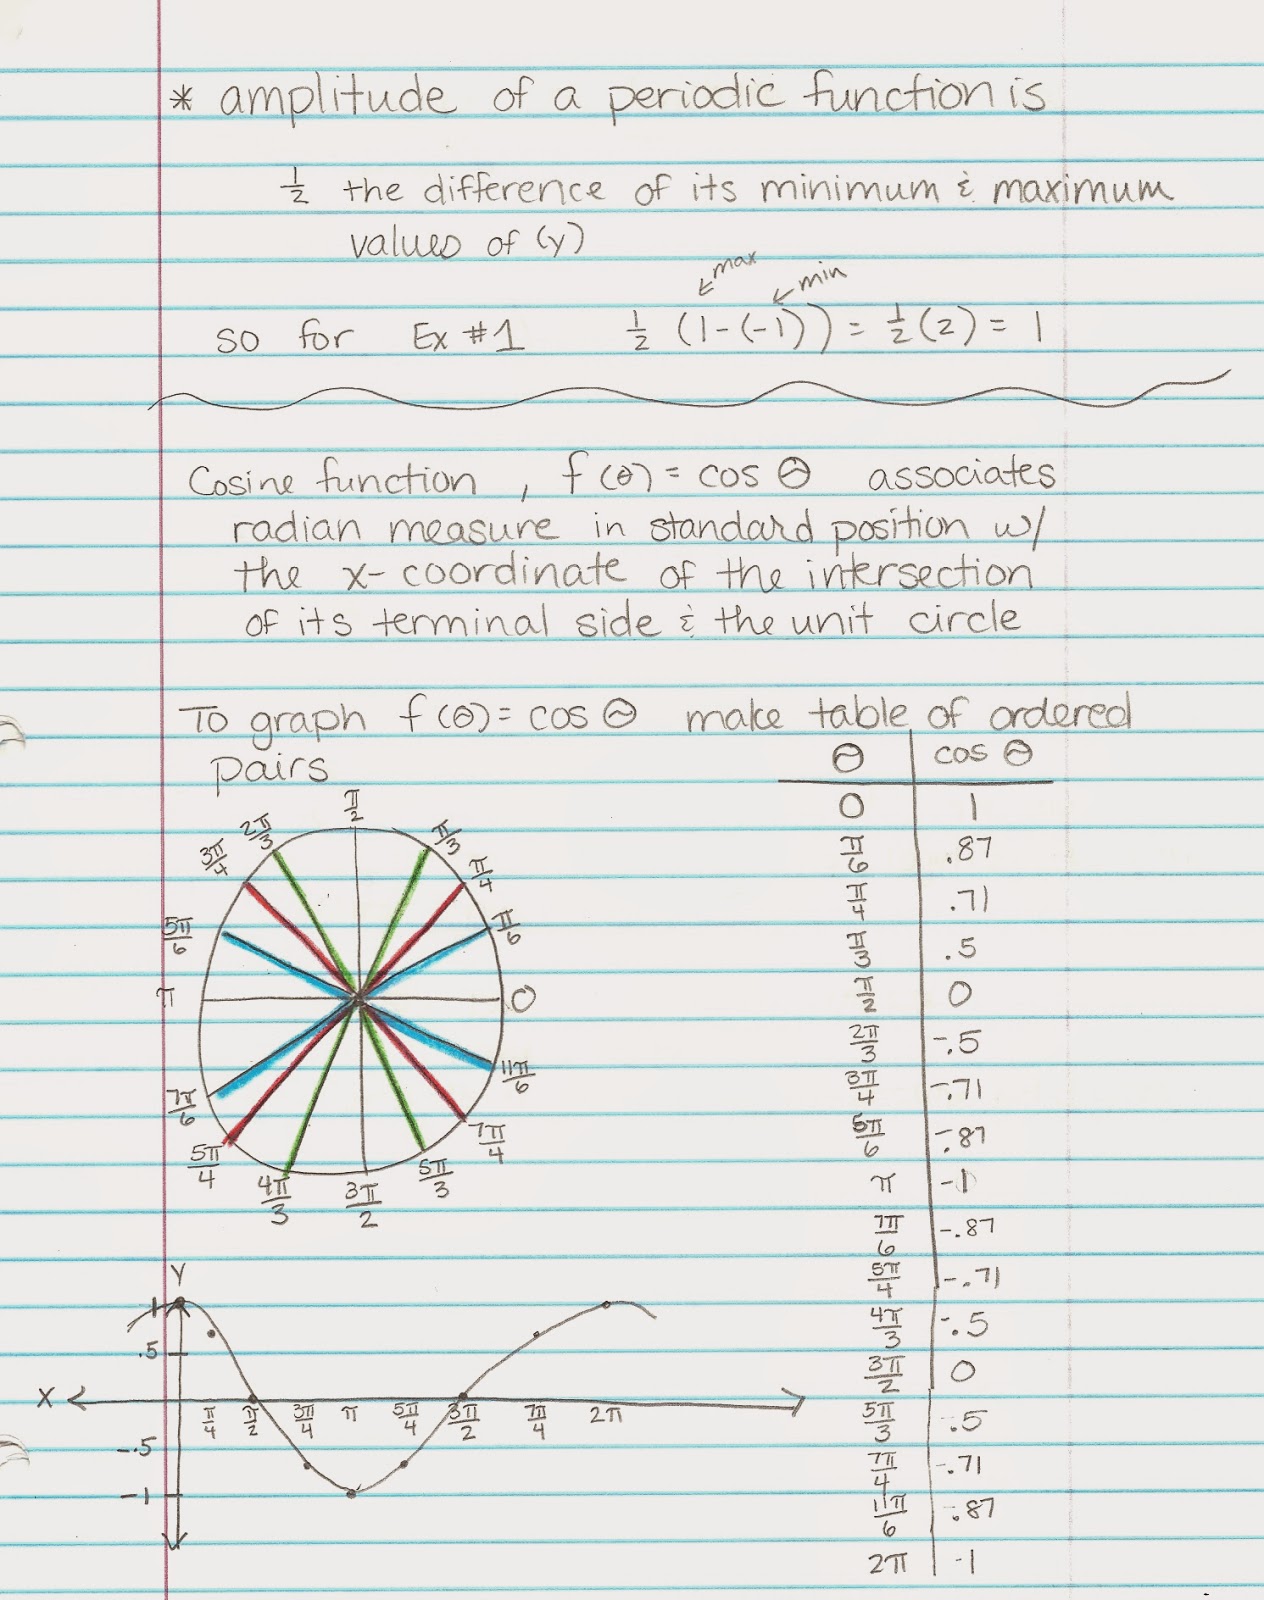 * amplitude of a periodic function is
½ the difference of its minimum & maximum
values of (y)
max
min
so for Ex #1 ½ (1-(-1)) = ½(2) = 1
Cosine function, f(θ) = cos θ associates
radian measure in standard position w/
the x-coordinate of the intersection
of its terminal side & the unit circle
To graph f(θ) = cos θ make table of ordered
pairs
θ cos θ
0 1
π/6 .87
π/4 .71
π/3 .5
π/2 0
2π/3 -.5
3π/4 -.71
5π/6 -.87
π -1
7π/6 -.87
5π/4 -.71
4π/3 -.5
3π/2 0
5π/3 -.5
7π/4 -.71
11π/6 -.87
2π -1
π/2
2π/3 π/3
3π/4 π/4
5π/6 π/6
π 0
7π/6 11π/6
5π/4 7π/4
4π/3 3π/2 5π/3
Y
1
.5
X
π/4 π/2 3π/4 π 5π/4 3π/2 7π/4 2π
-.5
-1